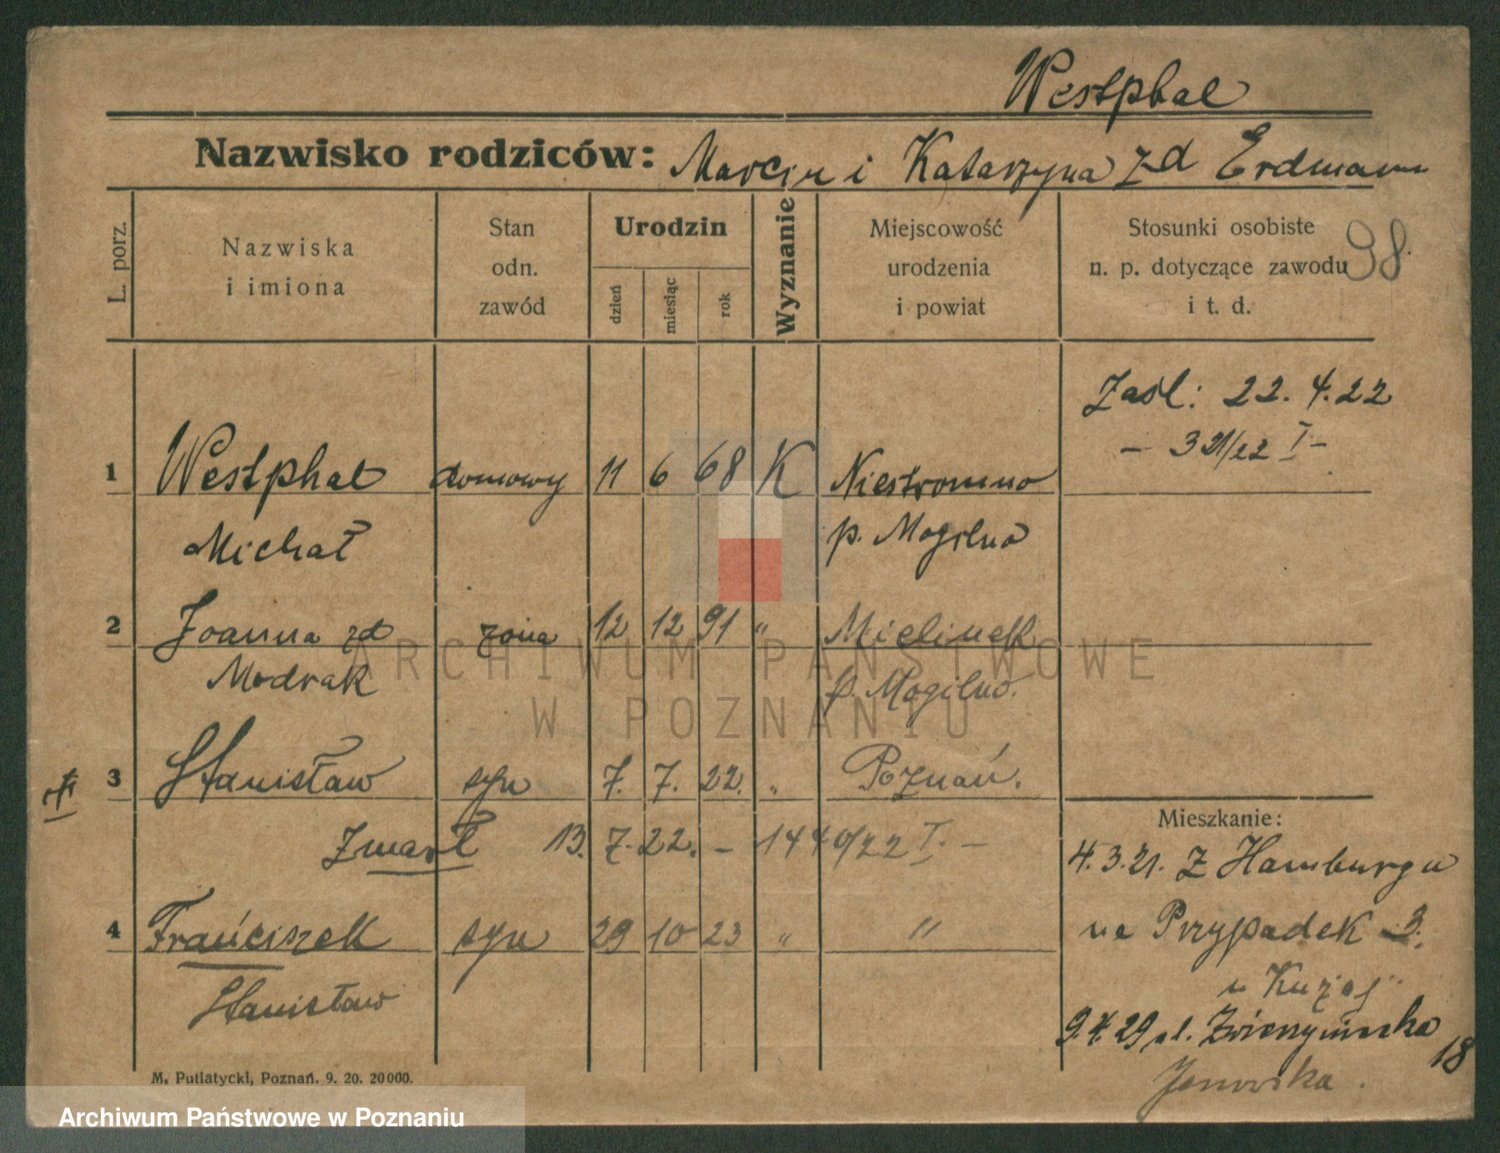 Westphal
Nazwisko rodziców: Marcin i Katarzyna zd Erdmann
L. porz.
Nazwiska
i imiona
Stan
odn.
zawód
Urodzin
dzień
miesiąc
rok
Wyznanie
Miejscowość
urodzenia
i powiat
Stosunki osobiste
n. p. dotyczące zawodu
i t. d.
98.
Zaśl: 22. 4. 22
1 Westphal domowy 11 6 68 K
Michał p. Mogilno
2 Joanna zd żona 12 12 91 " Mielinek
Modrak p. Mogilno.
3 Stanisław syn 7. 7. 22. " Poznań.
Zmarł 13. 7. 22. –
4 Franciszek syn 29 10 23 " "
Stanisław
Mieszkanie:
4.3.21. Z Hamburga
na Przypadek 3.
u
9.4.29 ul. Zwierzyniecka
18
M. Putiatycki, Poznań. 9. 20. 20000.
ARCHIWUM PAŃSTWOWE
W POZNANIU
Archiwum Państwowe w Poznaniu